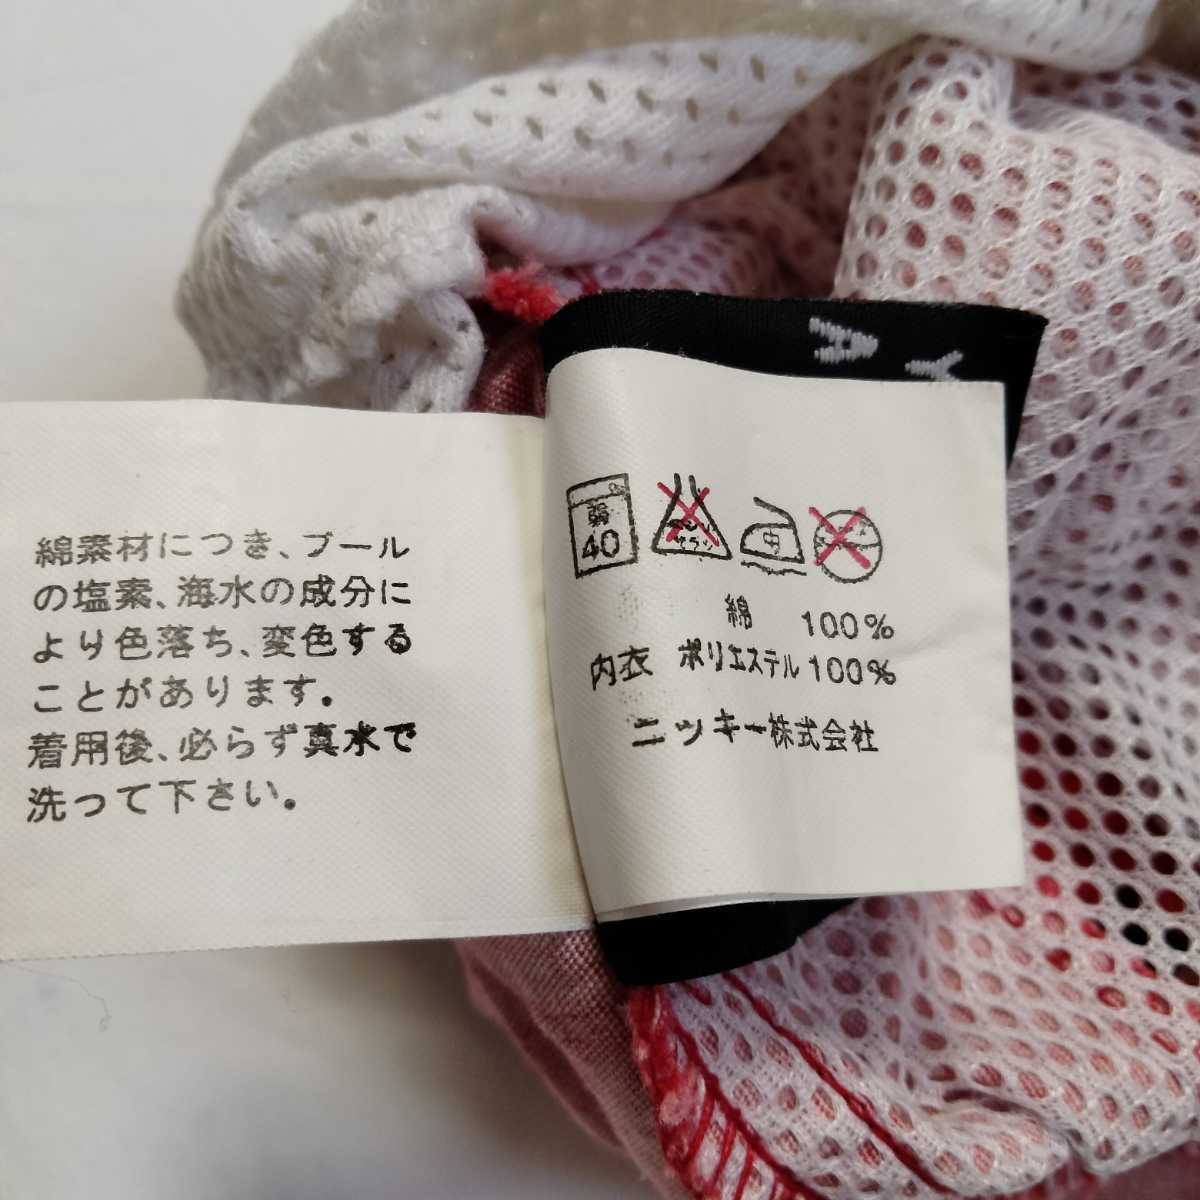 綿素材につき、プール
の塩素、海水の成分に
より色落ち、変色する
ことがあります。
着用後、必らず真水で
洗って下さい。
弱
40
エンソ
サラシ
中
綿 100%
内衣 ポリエステル100%
ニッキー株式会社